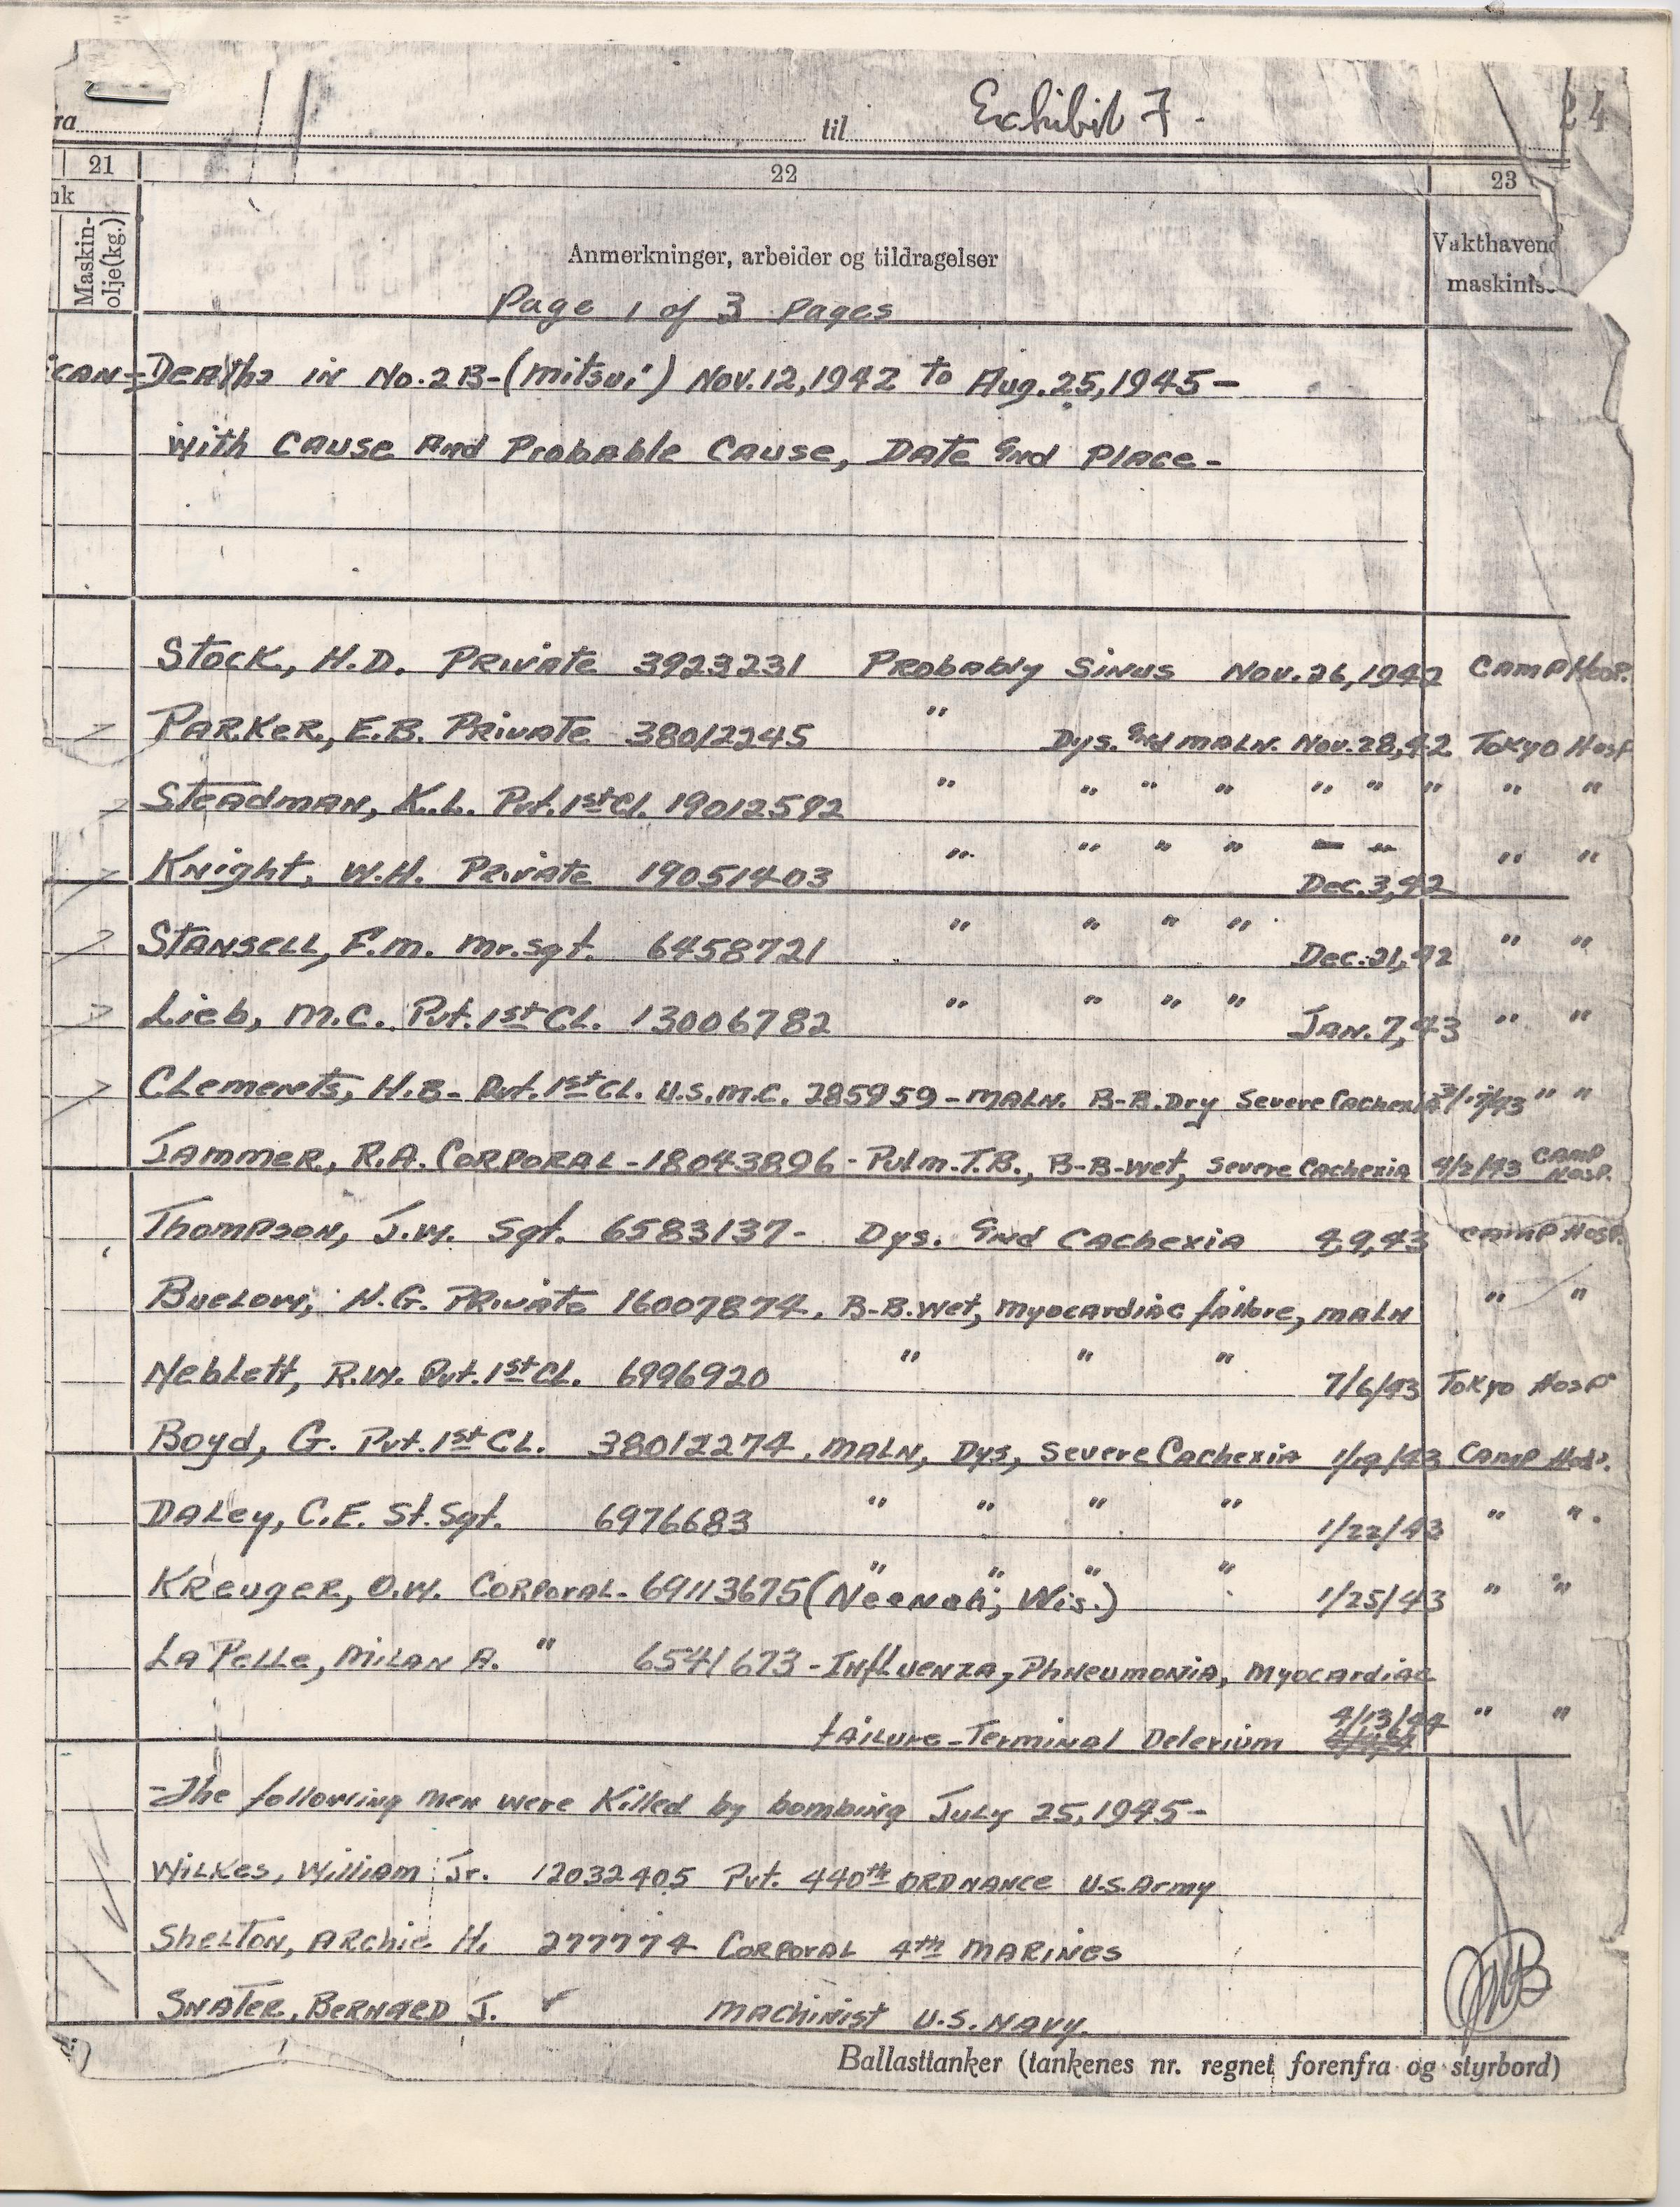 Exhibit 7.
24
ra til
21 22 23
uk
Maskin-
olje (kg.)
Anmerkninger, arbeider og tildragelser
Vakthavend
maskinis
Page 1 of 3 Pages
ican-Deaths in No. 2B-(Mitsui) Nov. 12, 1942 to Aug. 25, 1945-
with Cause And Probable Cause, Date and Place-
Stock, H.D. Private 3923231 Probably Sinus Nov. 26, 1942 Camp Hosp.
Parker, E.B. Private 38012245 " Dys. and Maln. Nov. 28, 42 Tokyo Hosp
Steadman, K.L. Pvt. 1st Cl. 19012592 " " " " " " " " "
Knight, W.H. Private 19051403 " " " " Dec. 3, 42 " "
Stansell, F.M. Mr. Sgt. 6458721 " " " " Dec. 21, 42 " "
Lieb, M.C. Pvt. 1st Cl. 13006782 " " " " Jan. 7, 43 " "
Clements, H.B- Pvt. 1st Cl. U.S.M.C. 285959-Maln. B-B. Dry Severe Cachexia " "
Jammer, R.A. Corporal-18043896-Pulm. T.B., B-B-Wet, Severe Cachexia 4/2/43 Camp Hosp.
Thompson, J.W. Sgt. 6583137- Dys. and Cachexia 4,9,43 Camp Hosp.
Buelow, H.G. Private 16007874, B-B. Wet, Myocardiac failure, Maln " "
Neblett, R.W. Pvt. 1st Cl. 6996920 " " " 7/6/43 Tokyo Hosp
Boyd, G. Pvt. 1st CL. 38012274, Maln, Dys, Severe Cachexia 1/19/43 Camp Hosp.
Daley, C.E. St. Sgt. 6976683 " " " " 1/22/43 " "
Kreuger, O.W. Corporal- 69113675 (Neenah, Wis.) " " " " 1/25/43 " "
LaPelle, Milan A. " 6541673-Influenza, Phneumonia, Myocardiac
failure-Terminal Delerium 4/13/44 " "
-The following men were Killed by bombing July 25, 1945-
Wilkes, William Jr. 12032405 Pvt. 440th Ordnance U.S. Army
Shelton, Archie H. 277774 Corporal 4th Marines
Snater, Bernard J. Machinist U.S. Navy.
Ballasttanker (tankenes nr. regnet forenfra og styrbord)